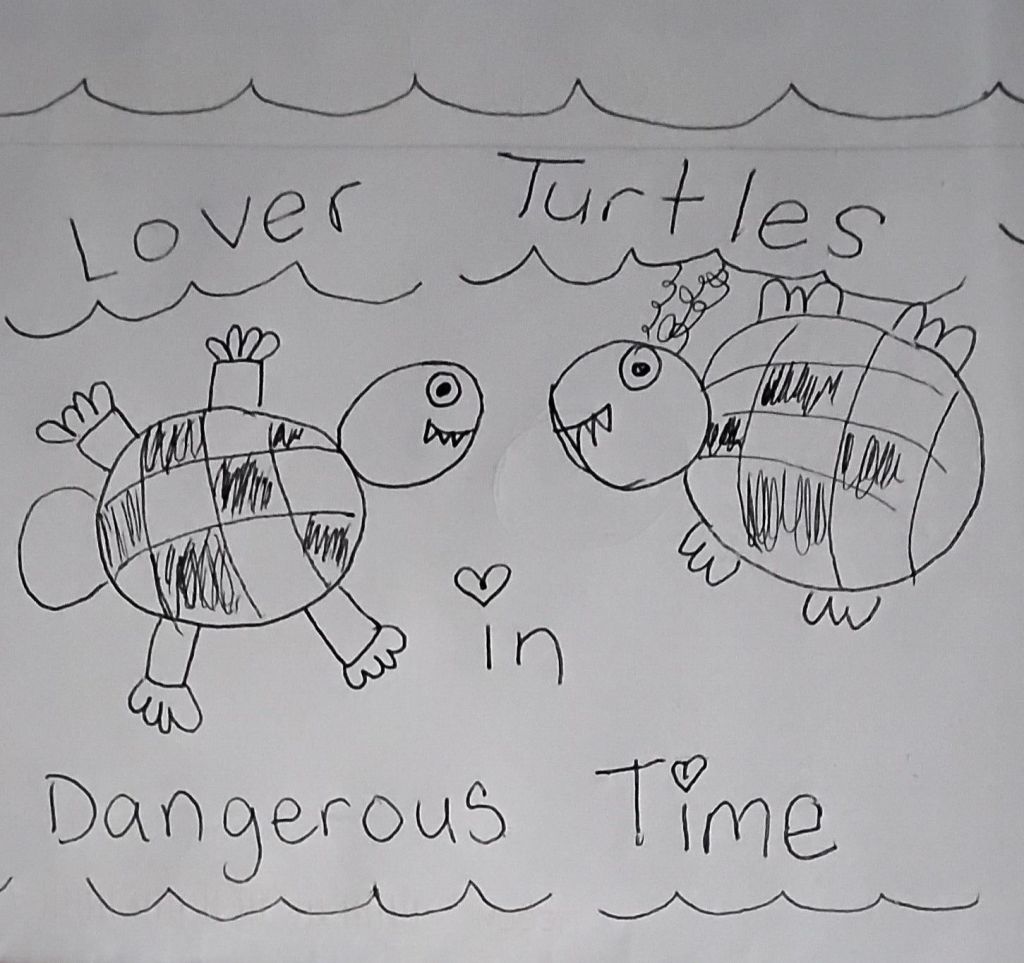 Lover Turtles
in
Dangerous Time